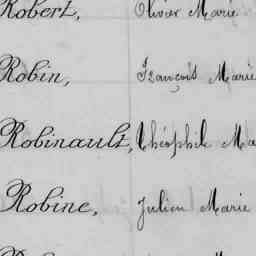 Robert, Olivier Marie
Robin, François Marie
Robinault, Théophile Ma
Robine, Julien Marie